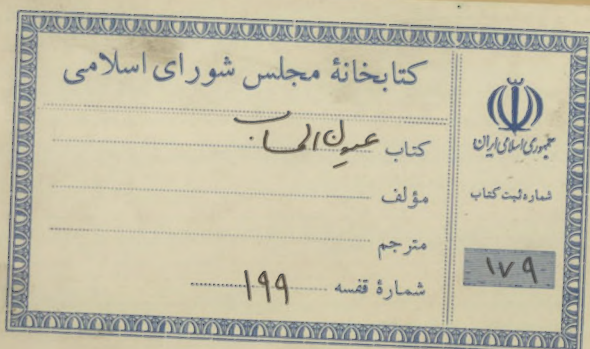 کتابخانهٔ مجلس شورای اسلامی
کتاب عیون الحساب
مؤلف
مترجم
شمارهٔ قفسه ۱۹۹
جمهوری اسلامی ایران
شماره ثبت کتاب
۱۷۹